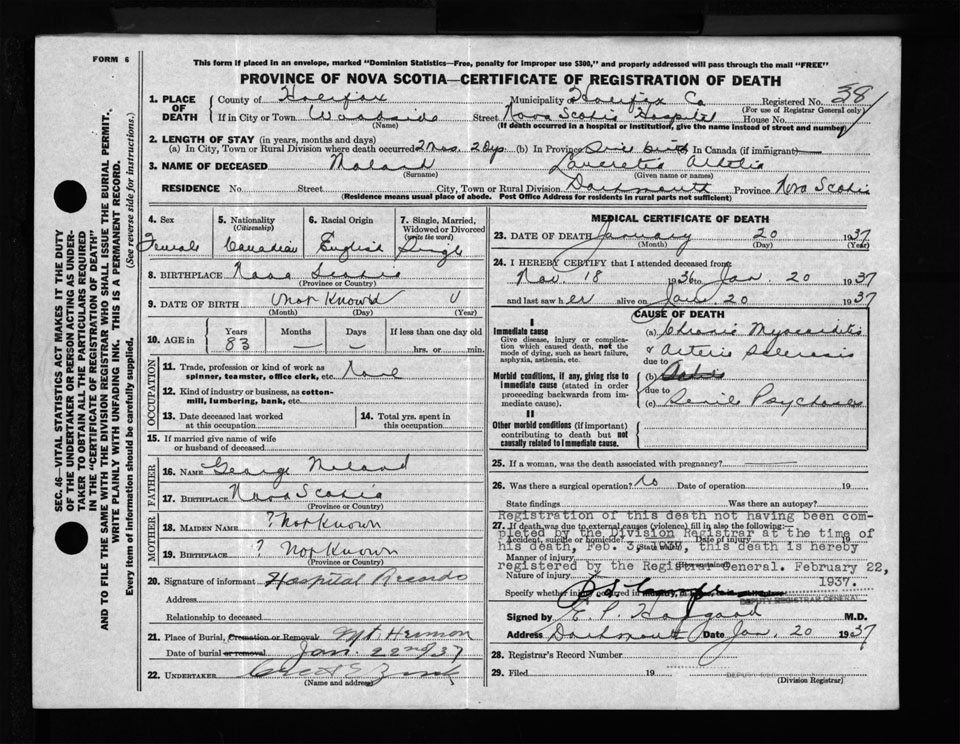 FORM 6
This form if placed in an envelope, marked "Dominion Statistics—Free, penalty for improper use $300," and properly addressed will pass through the mail "FREE"
PROVINCE OF NOVA SCOTIA—CERTIFICATE OF REGISTRATION OF DEATH
1. PLACE OF DEATH
County of Halifax Municipality Halifax Co Registered No. 38
(For use of Registrar General only)
If in City or Town Woodside Street Nova Scotia Hospital House No.
(Name) (If death occurred in a hospital or institution, give name instead of street and number)
2. LENGTH OF STAY (in years, months and days)
(a) In City, Town or Rural Division where death occurred 2 Mos. 2 Dys. (b) In Province (c) In Canada (if immigrant)
3. NAME OF DECEASED
(Surname) (Given name or names)
RESIDENCE No. Street City, Town or Rural Division Dartmouth Province Nova Scotia
(Residence means usual place of abode. Post Office Address for residents in rural parts not sufficient)
SEC. 46—VITAL STATISTICS ACT MAKES IT THE DUTY
OF THE UNDERTAKER OR PERSON ACTING AS UNDER-
TAKER TO OBTAIN ALL THE PARTICULARS REQUIRED
IN THE "CERTIFICATE OF REGISTRATION OF DEATH"
AND TO FILE THE SAME WITH THE DIVISION REGISTRAR WHO SHALL ISSUE THE BURIAL PERMIT.
WRITE PLAINLY WITH UNFADING INK. THIS IS A PERMANENT RECORD.
Every item of Information should be carefully supplied. (See reverse side for instructions.)
4. Sex Female
5. Nationality (Citizenship) Canadian
6. Racial Origin English
7. Single, Married, Widowed or Divorced (write the word) Single
8. BIRTHPLACE Nova Scotia
(Province or Country)
9. DATE OF BIRTH
(Month) (Day) (Year)
10. AGE in Years 83 Months — Days — If less than one day old hrs. or min.
OCCUPATION
11. Trade, profession or kind of work as spinner, teamster, office clerk, etc. None
12. Kind of industry or business, as cotton-mill, lumbering, bank, etc.
13. Date deceased last worked at this occupation
14. Total yrs. spent in this occupation
15. If married give name of wife or husband of deceased
FATHER
16. NAME George
17. BIRTHPLACE Nova Scotia
(Province or Country)
MOTHER
18. MAIDEN NAME ? Not Known
19. BIRTHPLACE ? Not Known
(Province or Country)
20. Signature of informant Hospital Records
Address
Relationship to deceased
21. Place of Burial, Cremation or Removal Mt. Hermon
Date of burial or removal Jan. 22nd 37
22. UNDERTAKER
(Name and address)
MEDICAL CERTIFICATE OF DEATH
23. DATE OF DEATH January 20 1937
(Month) (Day) (Year)
24. I HEREBY CERTIFY that I attended deceased from:
Nov. 18 1936 to Jan. 20 1937
and last saw her alive on Jan. 20 1937
CAUSE OF DEATH
I
Immediate cause
Give disease, injury or complication which caused death, not the mode of dying, such as heart failure, asphyxia, asthenia, etc.
(a) Chronic Myocarditis
& Arterio Sclerosis
due to
Morbid conditions, if any, giving rise to immediate cause (stated in order proceeding backwards from immediate cause).
(b)
due to
(c) Senile Psychosis
II
Other morbid conditions (if important) contributing to death but not causally related to immediate cause.
25. If a woman, was the death associated with pregnancy? —
26. Was there a surgical operation? No Date of operation 19
State findings Was there an autopsy?
27. If death was due to external causes (violence) fill in also the following:—
Accident, suicide or homicide? Date of injury 19
(State which)
Manner of injury
Nature of injury
Registration of this death not having been com-
pleted by the Division Registrar at the time of
his death, Feb. 3, 1937, this death is hereby
registered by the Registrar General. February 22,
1937.
DEPUTY REGISTRAR GENERAL
Signed by M.D.
Address Dartmouth Date Jan. 20 1937
28. Registrar's Record Number
29. Filed 19
(Division Registrar)